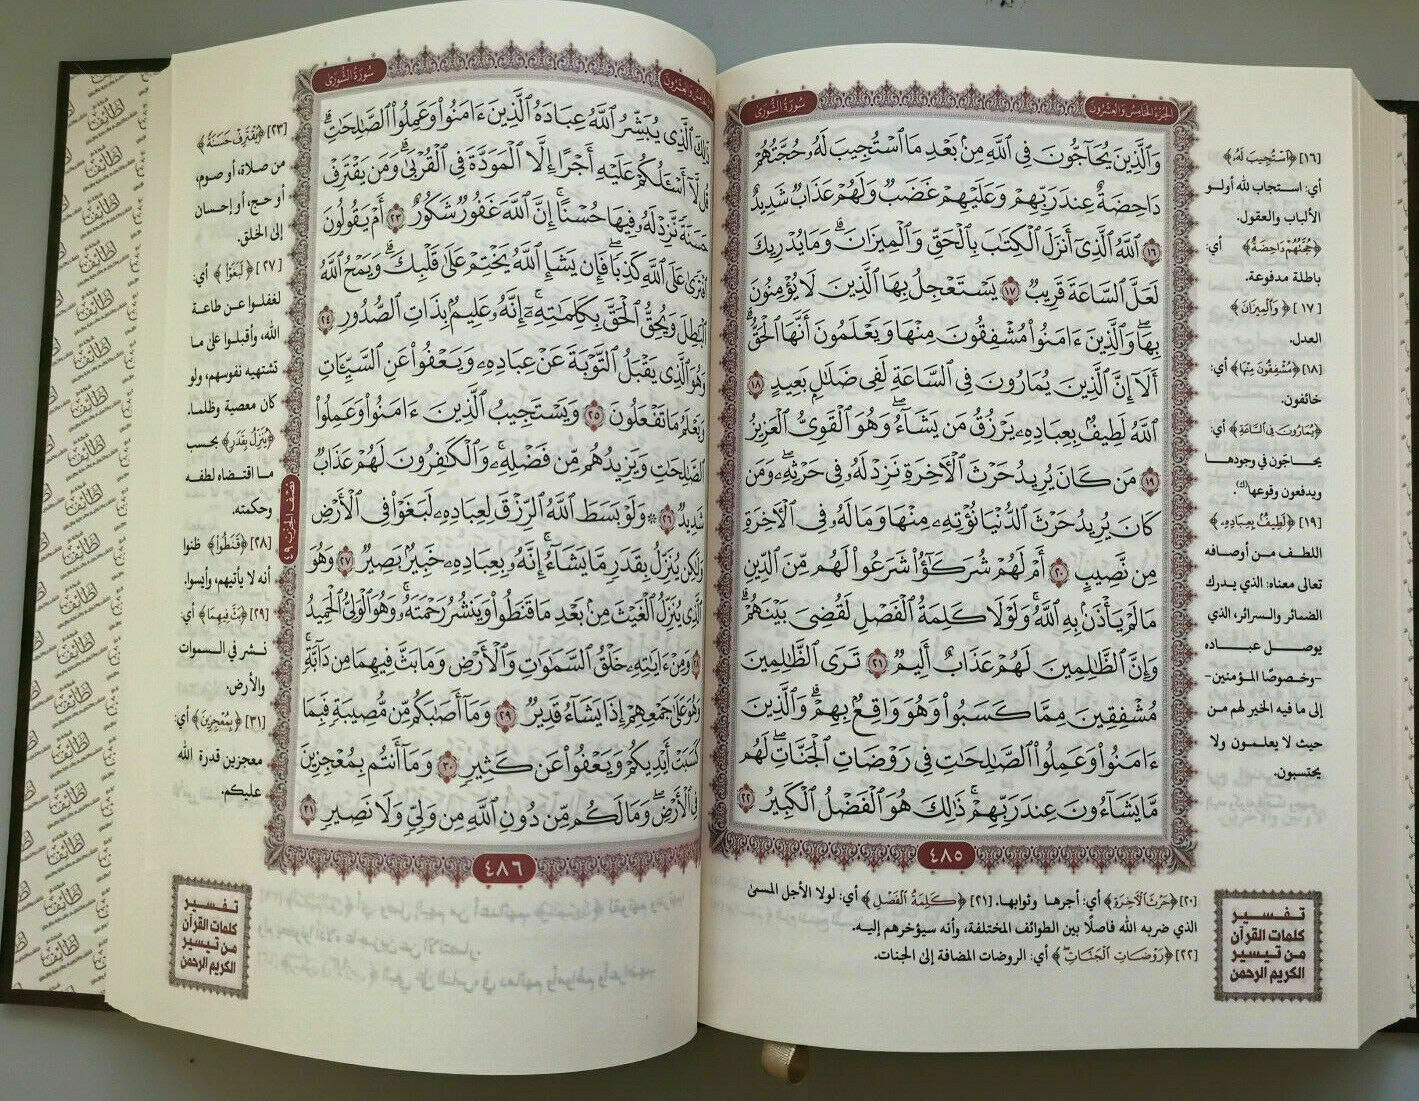 سُورَةُ الشُّورَىٰ
الجُزْءُ الخَامِسُ وَالعِشْرُونَ
وَٱلَّذِينَ يُحَآجُّونَ فِي ٱللَّهِ مِنۢ بَعْدِ مَا ٱسْتُجِيبَ لَهُۥ حُجَّتُهُمْ
دَاحِضَةٌ عِندَ رَبِّهِمْ وَعَلَيْهِمْ غَضَبٌ وَلَهُمْ عَذَابٌ شَدِيدٌ
١٦ ٱللَّهُ ٱلَّذِىٓ أَنزَلَ ٱلْكِتَٰبَ بِٱلْحَقِّ وَٱلْمِيزَانَ ۗ وَمَا يُدْرِيكَ
لَعَلَّ ٱلسَّاعَةَ قَرِيبٌ ١٧ يَسْتَعْجِلُ بِهَا ٱلَّذِينَ لَا يُؤْمِنُونَ
بِهَا ۖ وَٱلَّذِينَ ءَامَنُوا۟ مُشْفِقُونَ مِنْهَا وَيَعْلَمُونَ أَنَّهَا ٱلْحَقُّ ۗ
أَلَآ إِنَّ ٱلَّذِينَ يُمَارُونَ فِى ٱلسَّاعَةِ لَفِى ضَلَٰلٍۭ بَعِيدٍ ١٨
ٱللَّهُ لَطِيفٌۢ بِعِبَادِهِۦ يَرْزُقُ مَن يَشَآءُ ۖ وَهُوَ ٱلْقَوِىُّ ٱلْعَزِيزُ
١٩ مَن كَانَ يُرِيدُ حَرْثَ ٱلْءَاخِرَةِ نَزِدْ لَهُۥ فِى حَرْثِهِۦ ۖ وَمَن
كَانَ يُرِيدُ حَرْثَ ٱلدُّنْيَا نُؤْتِهِۦ مِنْهَا وَمَا لَهُۥ فِى ٱلْءَاخِرَةِ
مِن نَّصِيبٍ ٢٠ أَمْ لَهُمْ شُرَكَٰٓؤُا۟ شَرَعُوا۟ لَهُم مِّنَ ٱلدِّينِ
مَا لَمْ يَأْذَنۢ بِهِ ٱللَّهُ ۚ وَلَوْلَا كَلِمَةُ ٱلْفَصْلِ لَقُضِىَ بَيْنَهُمْ ۗ
وَإِنَّ ٱلظَّٰلِمِينَ لَهُمْ عَذَابٌ أَلِيمٌ ٢١ تَرَى ٱلظَّٰلِمِينَ
مُشْفِقِينَ مِمَّا كَسَبُوا۟ وَهُوَ وَاقِعٌۢ بِهِمْ ۗ وَٱلَّذِينَ
ءَامَنُوا۟ وَعَمِلُوا۟ ٱلصَّٰلِحَٰتِ فِى رَوْضَاتِ ٱلْجَنَّاتِ ۖ لَهُم
مَّا يَشَآءُونَ عِندَ رَبِّهِمْ ۚ ذَٰلِكَ هُوَ ٱلْفَضْلُ ٱلْكَبِيرُ ٢٢
٤٨٥
[١٦] ﴿ٱسْتُجِيبَ لَهُۥ﴾
أي: استجاب لله أولو
الألباب والعقول.
﴿حُجَّتُهُمْ دَاحِضَةٌ﴾ أي:
باطلة مدفوعة.
[١٧] ﴿وَٱلْمِيزَانَ﴾
العدل.
[١٨] ﴿مُشْفِقُونَ مِنْهَا﴾ أي:
خائفون.
﴿يُمَارُونَ فِى ٱلسَّاعَةِ﴾ أي:
يحاجّون في وجودها
ويدفعون وقوعها(ك).
[١٩] ﴿لَطِيفٌۢ بِعِبَادِهِۦ﴾
اللطف من أوصافه
تعالى معناه: الذي يدرك
الضمائر والسرائر، الذي
يوصل عباده
-وخصوصًا المؤمنين-
إلى ما فيه الخير لهم من
حيث لا يعلمون ولا
يحتسبون.
[٢٠] ﴿حَرْثَ ٱلْءَاخِرَةِ﴾ أي: أجرها وثوابها. [٢١] ﴿كَلِمَةُ ٱلْفَصْلِ﴾ أي: لولا الأجل المسمىٰ
الذي ضربه الله فاصلًا بين الطوائف المختلفة، وأنه سيؤخرهم إليه.
[٢٢] ﴿رَوْضَاتِ ٱلْجَنَّاتِ﴾ أي: الروضات المضافة إلى الجنات.
تفسير
كلمات القرآن
من تيسير
الكريم الرحمن
سُورَةُ الشُّورَىٰ
وَالعِشْرُونَ
ذَٰلِكَ ٱلَّذِى يُبَشِّرُ ٱللَّهُ عِبَادَهُ ٱلَّذِينَ ءَامَنُوا۟ وَعَمِلُوا۟ ٱلصَّٰلِحَٰتِ ۗ
قُل لَّآ أَسْـَٔلُكُمْ عَلَيْهِ أَجْرًا إِلَّا ٱلْمَوَدَّةَ فِى ٱلْقُرْبَىٰ ۗ وَمَن يَقْتَرِفْ
حَسَنَةً نَّزِدْ لَهُۥ فِيهَا حُسْنًا ۚ إِنَّ ٱللَّهَ غَفُورٌ شَكُورٌ ٢٣ أَمْ يَقُولُونَ
ٱفْتَرَىٰ عَلَى ٱللَّهِ كَذِبًا ۖ فَإِن يَشَإِ ٱللَّهُ يَخْتِمْ عَلَىٰ قَلْبِكَ ۗ وَيَمْحُ ٱللَّهُ
ٱلْبَٰطِلَ وَيُحِقُّ ٱلْحَقَّ بِكَلِمَٰتِهِۦٓ ۚ إِنَّهُۥ عَلِيمٌۢ بِذَاتِ ٱلصُّدُورِ ٢٤
وَهُوَ ٱلَّذِى يَقْبَلُ ٱلتَّوْبَةَ عَنْ عِبَادِهِۦ وَيَعْفُوا۟ عَنِ ٱلسَّيِّـَٔاتِ
وَيَعْلَمُ مَا تَفْعَلُونَ ٢٥ وَيَسْتَجِيبُ ٱلَّذِينَ ءَامَنُوا۟ وَعَمِلُوا۟
ٱلصَّٰلِحَٰتِ وَيَزِيدُهُم مِّن فَضْلِهِۦ ۚ وَٱلْكَٰفِرُونَ لَهُمْ عَذَابٌ
شَدِيدٌ ٢٦ ۞ وَلَوْ بَسَطَ ٱللَّهُ ٱلرِّزْقَ لِعِبَادِهِۦ لَبَغَوْا۟ فِى ٱلْأَرْضِ
وَلَٰكِن يُنَزِّلُ بِقَدَرٍ مَّا يَشَآءُ ۚ إِنَّهُۥ بِعِبَادِهِۦ خَبِيرٌۢ بَصِيرٌ ٢٧ وَهُوَ
ٱلَّذِى يُنَزِّلُ ٱلْغَيْثَ مِنۢ بَعْدِ مَا قَنَطُوا۟ وَيَنشُرُ رَحْمَتَهُۥ ۚ وَهُوَ ٱلْوَلِىُّ ٱلْحَمِيدُ
٢٨ وَمِنْ ءَايَٰتِهِۦ خَلْقُ ٱلسَّمَٰوَٰتِ وَٱلْأَرْضِ وَمَا بَثَّ فِيهِمَا مِن دَآبَّةٍ ۚ
وَهُوَ عَلَىٰ جَمْعِهِمْ إِذَا يَشَآءُ قَدِيرٌ ٢٩ وَمَآ أَصَٰبَكُم مِّن مُّصِيبَةٍ فَبِمَا
كَسَبَتْ أَيْدِيكُمْ وَيَعْفُوا۟ عَن كَثِيرٍ ٣٠ وَمَآ أَنتُم بِمُعْجِزِينَ
فِى ٱلْأَرْضِ ۖ وَمَا لَكُم مِّن دُونِ ٱللَّهِ مِن وَلِىٍّ وَلَا نَصِيرٍ ٣١
٤٨٦
نصف الجزء ٤٩
[٢٣] ﴿يَقْتَرِفْ حَسَنَةً﴾
من صلاة، أو صوم،
أو حج، أو إحسان
إلى الخلق.
[٢٧] ﴿لَبَغَوْا۟﴾ أي:
لغفلوا عن طاعة
الله، وأقبلوا على ما
تشتهيه نفوسهم، ولو
كان معصية وظلما.
﴿يُنَزِّلُ بِقَدَرٍ﴾ بحسب
ما اقتضاه لطفه
وحكمته.
[٢٨] ﴿قَنَطُوا۟﴾ ظنوا
أنه لا يأتيهم، وأيسوا.
[٢٩] ﴿بَثَّ فِيهِمَا﴾ أي:
نشر في السموات
والأرض.
[٣١] ﴿بِمُعْجِزِينَ﴾ أي:
معجزين قدرة الله
عليكم.
تفسير
كلمات القرآن
من تيسير
الكريم الرحمن
لطائف